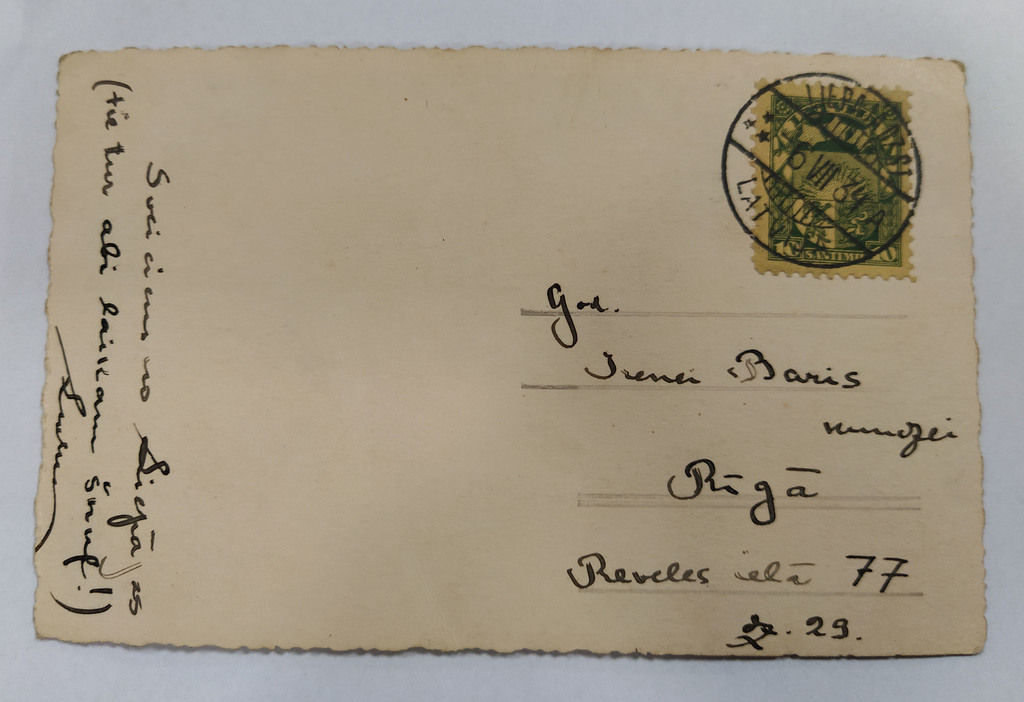 Sveiciens no Liepājas
(tie tur abi laikam šmuļ!)
LIEPAJA
LATV
VII 34 A
10 SANTIMU 10
God.
Irenei Baris
kundzei
Rīgā
Reveles ielā 77
dz. 29.